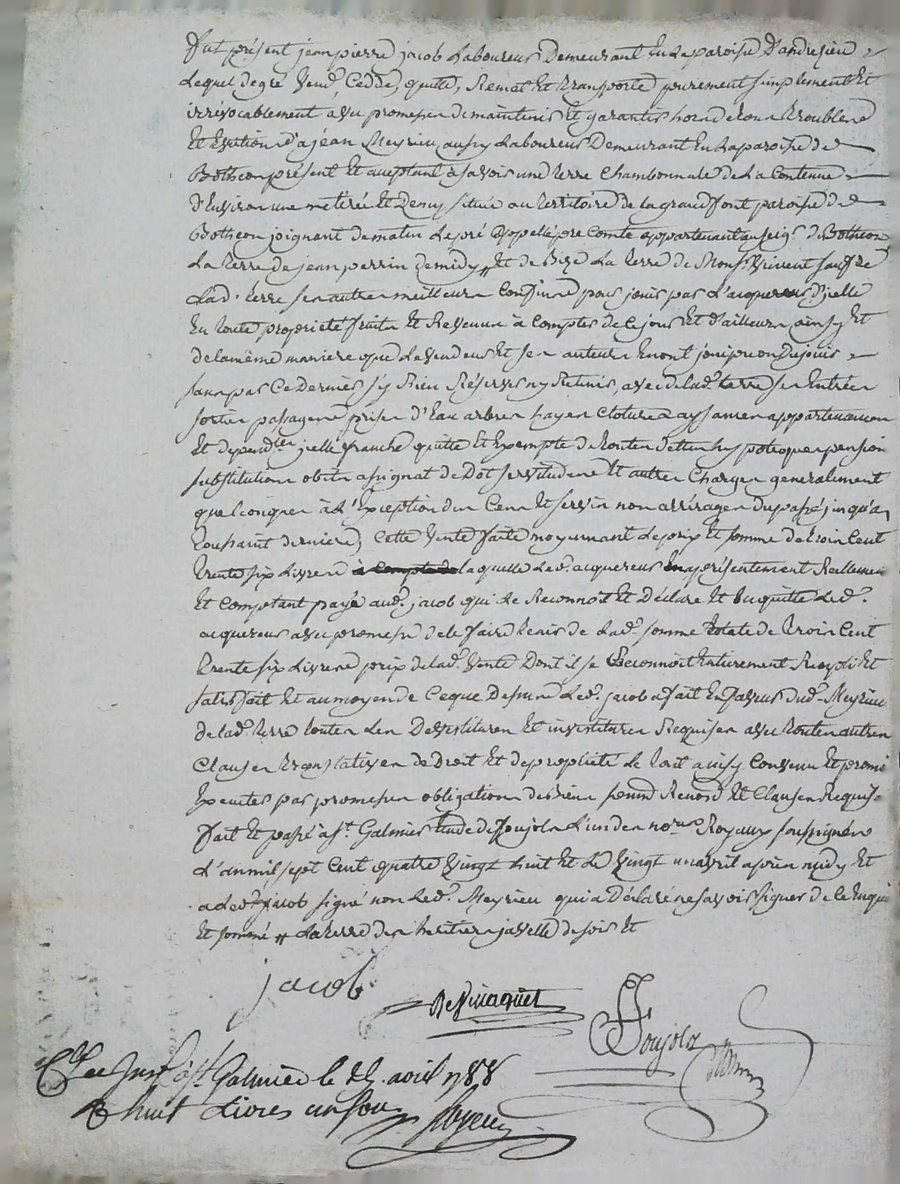 fut présent jean pierre jacob Laboureur Demeurant En La paroise D'andrezieu
Lequel de gré vend, Cedde, quitte, Remat Et transporte purement simplement Et
irrévocablement avec promesse de maintenir Et garantir hors de tour troubles
Et Eviction a jean Meyrieu aussy Laboureur Demeurant En La paroise de
Botheon présent Et aceptant a savoir une terre Chambonnale de La Contenue
d'Environ une métérée Et Demy située au territoire de la grand font paroise de
Botheon joignant de matin Le pré appellé pré Comte appartenant au seigr. de Botheon
La terre de jean perrin de midy # Et de Bize La terre de Monsr. vincent sauf de
Lad. terre ses autres meilleurs Confins pour jouir par L'acquereur d'jcelle
En toute propriété fruits Et Revenus à Compter de Ce jour Et d'ailleurs ainsy Et
de la même maniere que Le Vendeur Et ses auteurs En ont joui pu ou du jouir
sans par Ce Dernier s'y Rien Réserver ny Retenir, avec de lad. terre ses Entrées
sorties passages prises d'Eau arbres hayes Clotures aysances appartenances
Et dependces jcelle franche quitte Et Exempte de toutes dettes hypoteques pension
substitutions obits assignat de Dot servitudes Et autres Charges generalement
quelconques à L'Exception des Cens Et servis non arréragés du passé jusqu'a
toussaint derniere, Cette Vente faite moyennant Le prix Et somme de trois Cent
trente six Livres laquelle Led. acquereur présentement Réellement
Et Comptant payé aud. jacob qui Le Reconnoit Et Déclare Et En quitte Led.
acquereur avec promesse de le faire tenir de Lad. somme totale de trois Cent
trente six Livres prix de lad. Vente Dont il se Reconnoit Entierement Rempli Et
satisfait Et au moyen de Ce que Dessus Led. jacob a fait En faveur dud. Meyrieu
de lad. terre toutes Les Devestitures Et investitures Requises avec toutes autres
Clauses translatives de droit Et de propriété Le tout ainsy Convenu Et promis
Executer par promesses obligation de biens soumis Renons Et Clauses Requises
fait Et passé à St. Galmier Etude de Poujols L'un des nores Royaux soussignés
L'an mil sept Cent quatre Vingt huit Et Le Vingt un avril après midy Et
a Led. jacob signé non Led. Meyrieu qui a Déclaré ne savoir signer de Ce Enquis
Et sommé # La terre des heritiers javelle de soir Et
jacob
Poujols
Cllé Insé à St Galmier le avril 1788
R huit Livres un sou